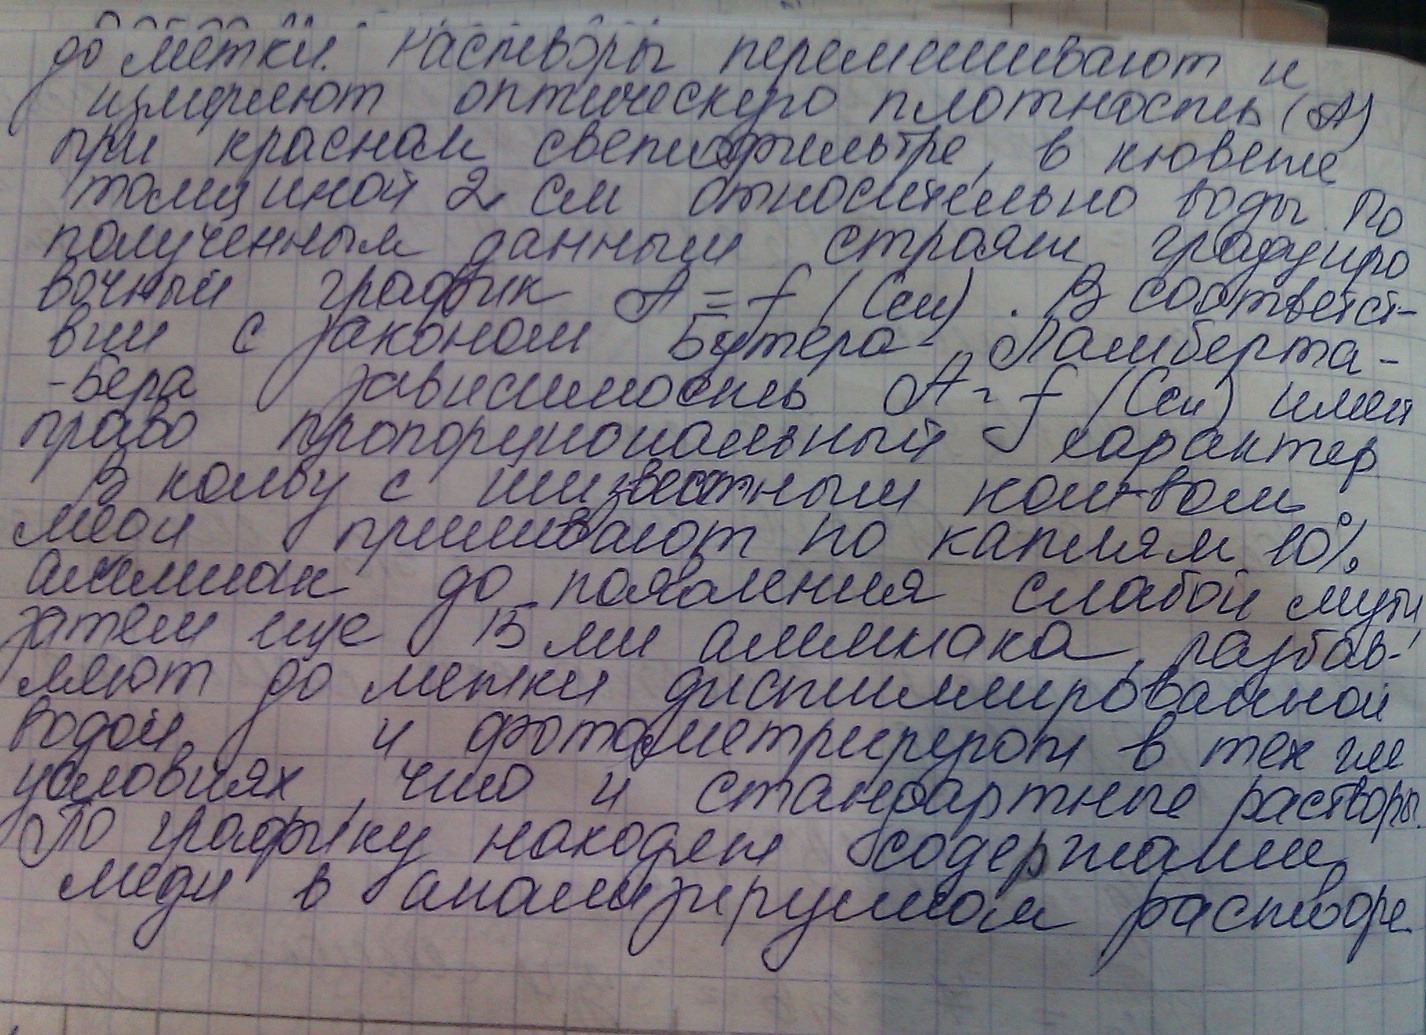 до метки. Растворы перемешивают и
измеряют оптическую плотность (А)
при красном светофильтре, в кювете
толщиной 2 см относительно воды. По
полученным данным строят градуиро
вочный график А = f (Cси). В соответст-
вии с законом Бугера-Ламберта-
-Бера зависимость А = f (Cси) имеет
прямо пропорциональный характер
В колбу с неизвестным кол-вом
меди приливают по каплям 10%
аммиак до появления слабой мути
затем еще 15 мл аммиака, разбав-
ляют до метки дистиллированной
водой, и фотометрируют в тех же
условиях, что и стандартные растворы.
По графику находят содержание
меди в анализируемом растворе.